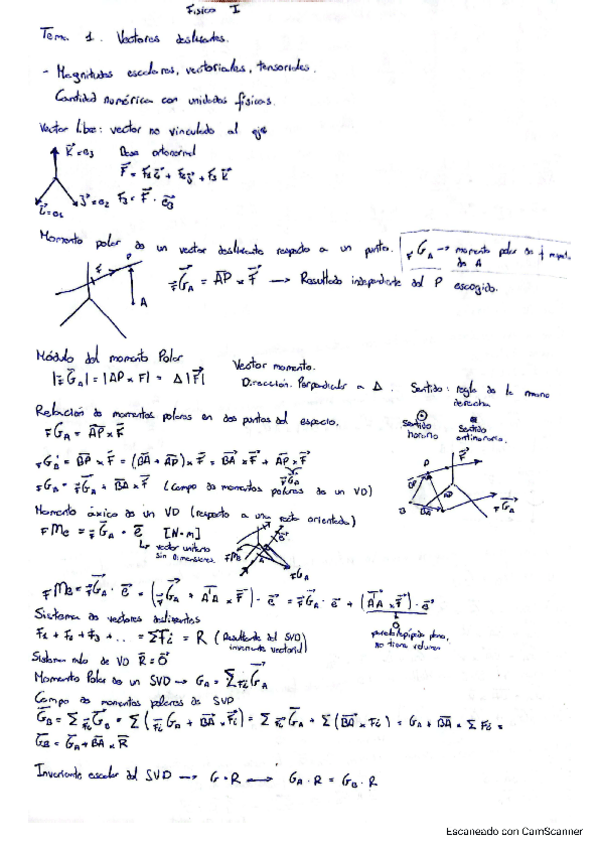 Física I
Tema 1. Vectores deslizantes.
- Magnitudes escalares, vectoriales, tensoriales.
Cantidad numérica con unidades físicas.
Vector libre: vector no vinculado al eje
K⃗=e₃ Base ortonormal
F⃗ = F₁i⃗ + F₂j⃗ + F₃K⃗
i⃗=e₁ J⃗=e₂ F₃ = F⃗ · e⃗₃
Momento polar de un vector deslizante respecto a un punto.
FG⃗A → momento polar de f respecto de A
FG⃗A = AP × F⃗ → Resultado independiente del P escogido.
F P
A
Módulo del momento Polar
|FG⃗A| = |AP × F| = Δ|F⃗|
Vector momento.
Dirección. Perpendicular a Δ. Sentido: regla de la mano derecha
Sentido horario Sentido antihorario.
Relación de momentos polares en dos puntos del espacio.
FGA = AP × F⃗
FGB = BP × F⃗ = (BA + AP) × F⃗ = BA × F⃗ + AP × F⃗
FGA
FGB = FGA + BA × F⃗ (Campo de momentos polares de un VD)
Momento áxico de un VD (respecto a una recta orientada)
FMe = FG⃗A · e⃗ [N·m]
↳ vector unitario sin dimensiones.
FMe FGA
FMe = FG⃗A · e⃗ = (FG⃗A + A'A × F⃗) · e⃗ = FG⃗A · e⃗ + (A'A × F⃗) · e⃗
0
paralelepípedo plano, no tiene volumen
Sistema de vectores deslizantes
F₁ + F₂ + F₃ + ... = ΣFi = R (Resultante del SVD)
invariante vectorial
Sistema nulo de VD R⃗ = 0⃗
Momento Polar de un SVD → GA = ΣFiG⃗A
Campo de momentos polares de SVD
G⃗B = ΣFiG⃗B = Σ(FiGA + BA × Fi) = ΣFiG⃗A + Σ(BA × Fi) = GA + BA × ΣFi =
G⃗B = G⃗A + BA × R⃗
Invariante escalar del SVD → G · R → GA · R = GB · R
Escaneado con CamScanner